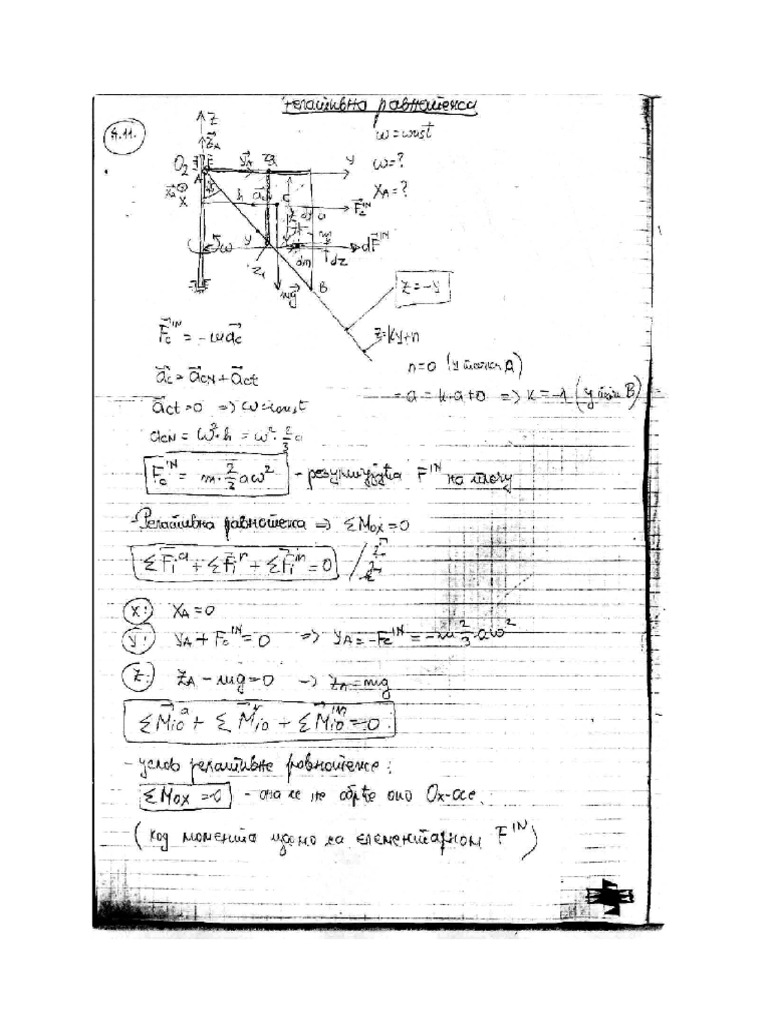 Релативна равнотежа
4.11.
ω=const
ω=?
X_A=?
z
Z_A
O_2
A
Y_A
y
X
h
C
a
F_c^IN
ω
y
dm
dz
dF^IN
z_1
B
mg
z=-y
z=ky+n
n=0 (у тачки A)
-a=k·a+0 => k=-1 (у тачки B)
F_c^IN = -ma_c
a_c = a_cN + a_ct
a_ct=0 => ω=const
a_cN = ω²·h = ω²·2/3 a
F_c^IN = m·2/3 aω² - резултујућа F^IN на плочу
-Релативна равнотежа => ΣM_ox=0
ΣF_i^a + ΣF_i^r + ΣF_i^in = 0
x: X_A=0
y: Y_A + F_c^IN=0 => Y_A=-F_c^IN = -m 2/3 aω²
z: Z_A - mg=0 -> Z_A=mg
ΣM_io^a + ΣM_io^r + ΣM_io^IN = 0
-услов релативне равнотеже:
ΣM_ox=0 - она се не обрће око Ox-осе.
(код момента идемо са елементарном F^IN)